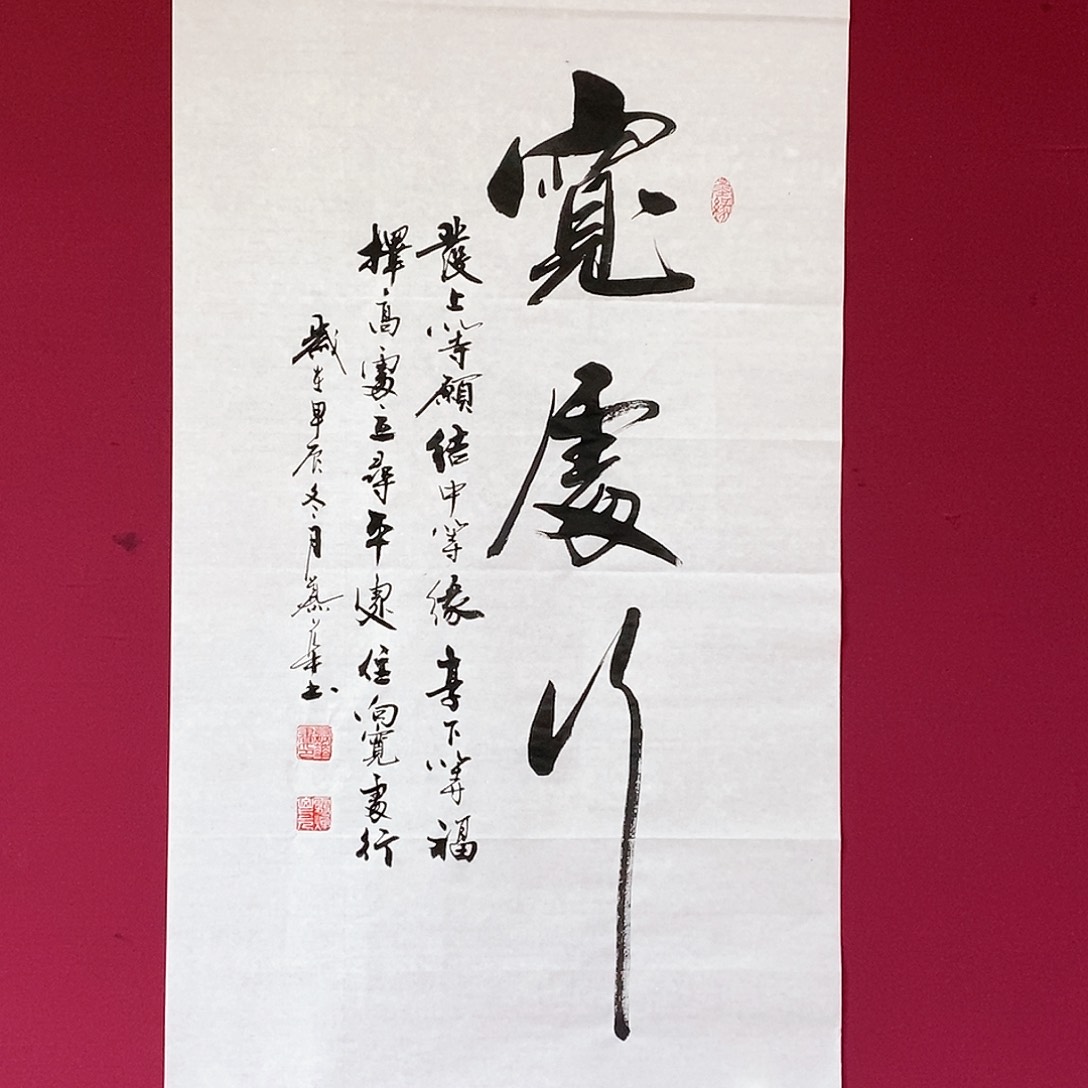 寬處行
發上等願結中等緣享下等福
擇高處立尋平處住向寬處行
歲在甲辰冬月慕華書